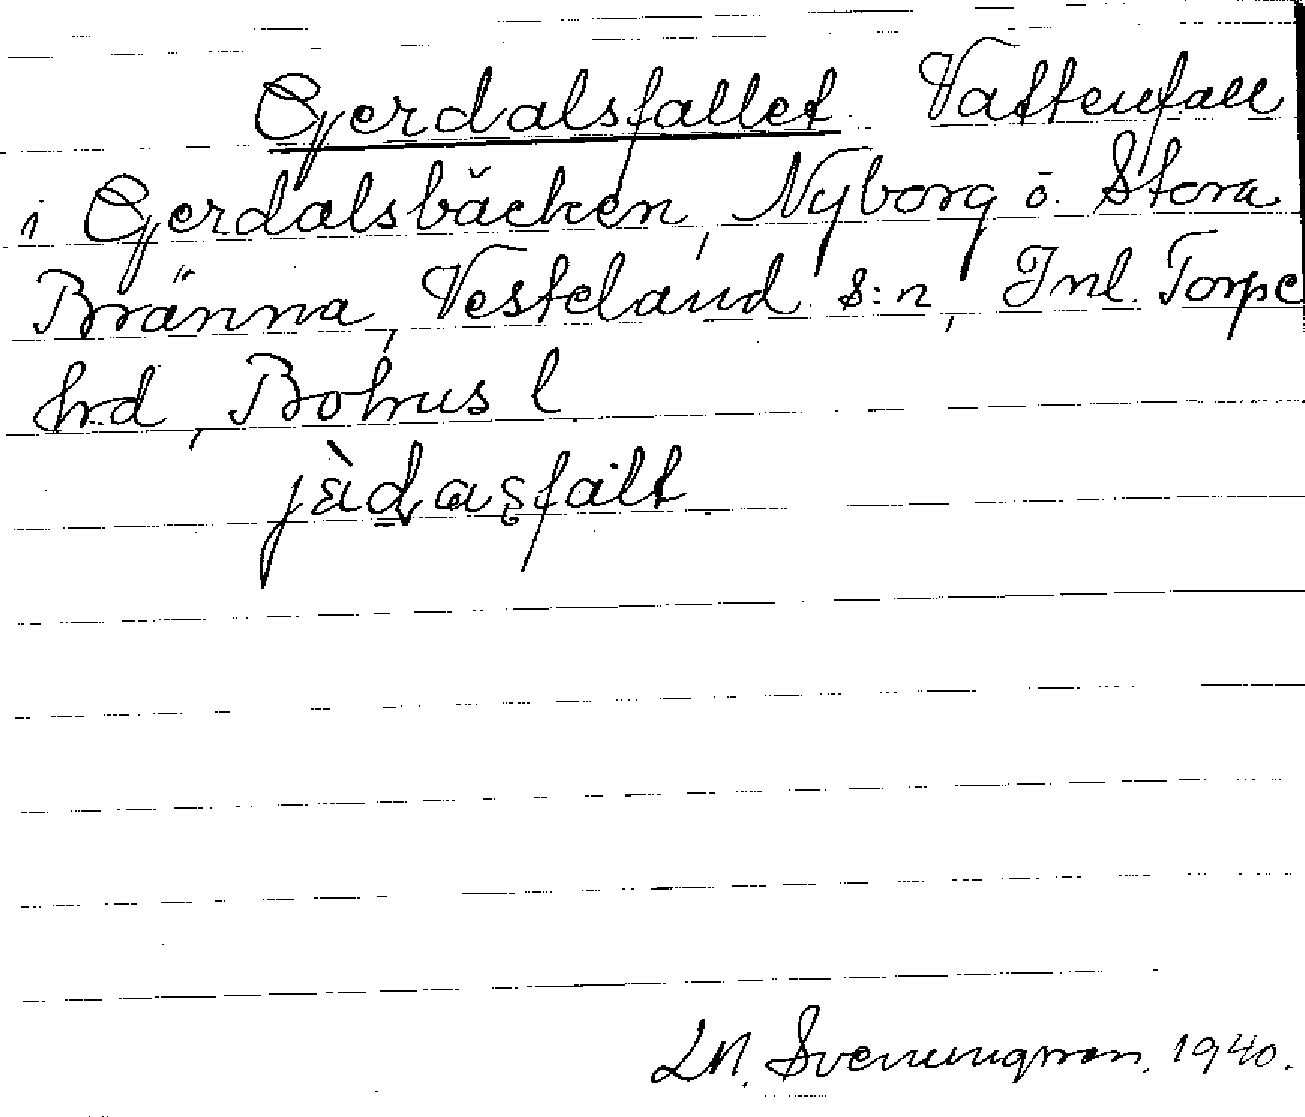 Gerdalsfallet. Vattenfall
i Gerdalsbäcken, Nyborg o. Stora
Bränna, Vesteland s:n, Inl. Torpe
hrd, Bohus l
jàdasfalt
LN. Svenungsson. 1940.